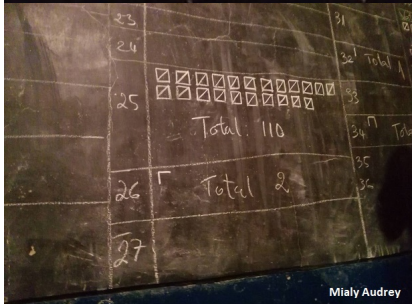 23
24
25
Total: 110
26
Total 2
27
31
32
Total
33
34
Tot
35
36
Mialy Audrey